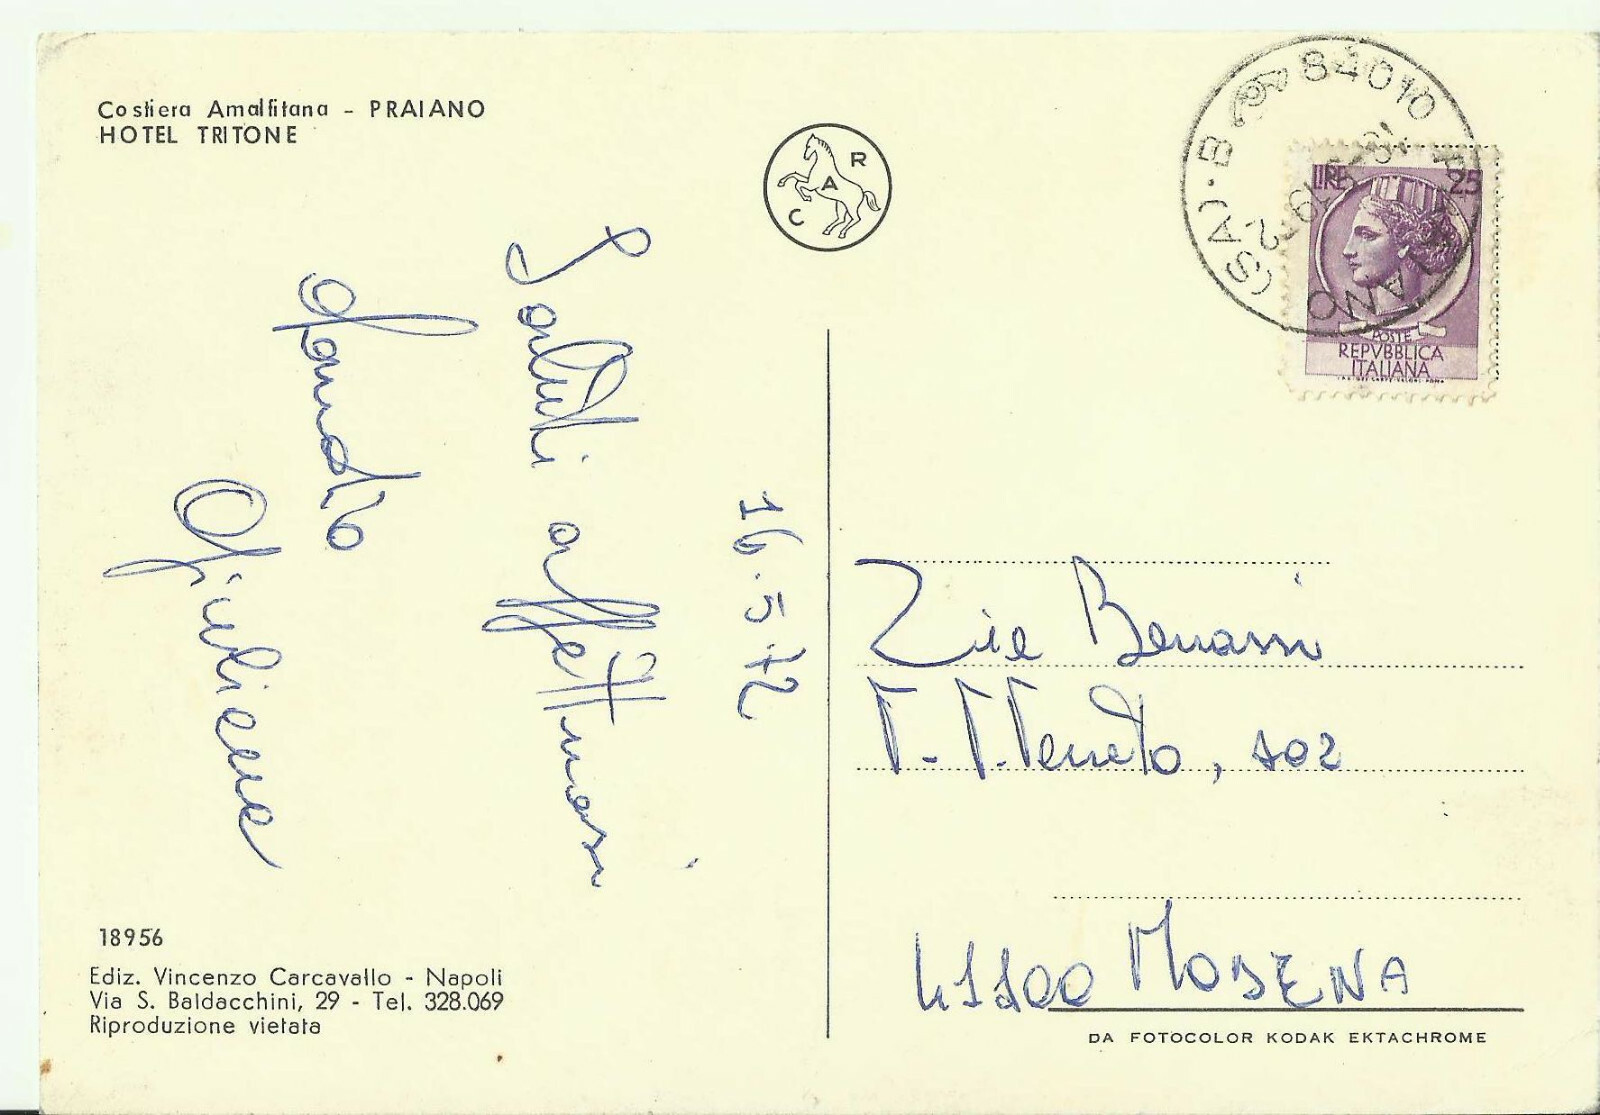 Costiera Amalfitana - PRAIANO
HOTEL TRITONE
CAR
84010 PRAIANO (SA) · B
LIRE 25
POSTE
REPVBBLICA
ITALIANA
16.5.72
Saluti affettuosi
Sandro
Giuliana
Zie Benassi
V. V. Veneto, 102
41100 MODENA
18956
Ediz. Vincenzo Carcavallo - Napoli
Via S. Baldacchini, 29 - Tel. 328.069
Riproduzione vietata
DA FOTOCOLOR KODAK EKTACHROME